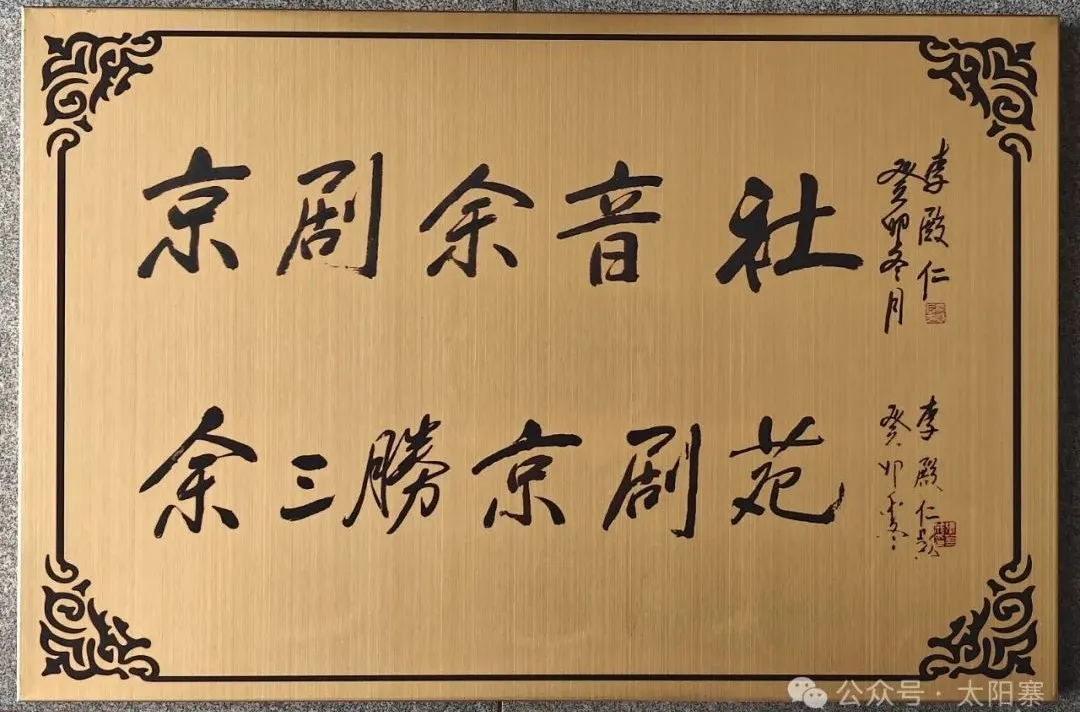 京剧余音社
李殿仁
癸卯冬月
余三勝京剧苑
李殿仁题
癸卯季冬
公众号 · 太阳寨